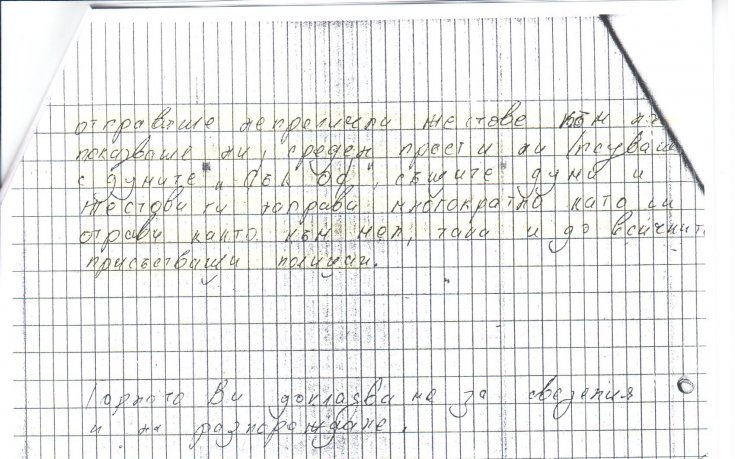 отправяше неприлични жестове към не
показваше ни среден пръст и ни псуваш
с думите "Фък Оф", същите думи и
жестове ги направи многократно като ги
отправи както към мен, така и до всичкит
присъстващи полицаи.
Горното Ви докладвам за сведения
и на разпореждане.